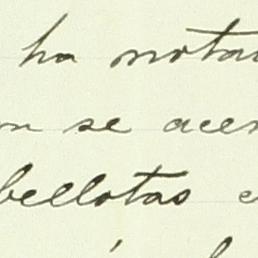 ha nota
se acer
bellotas